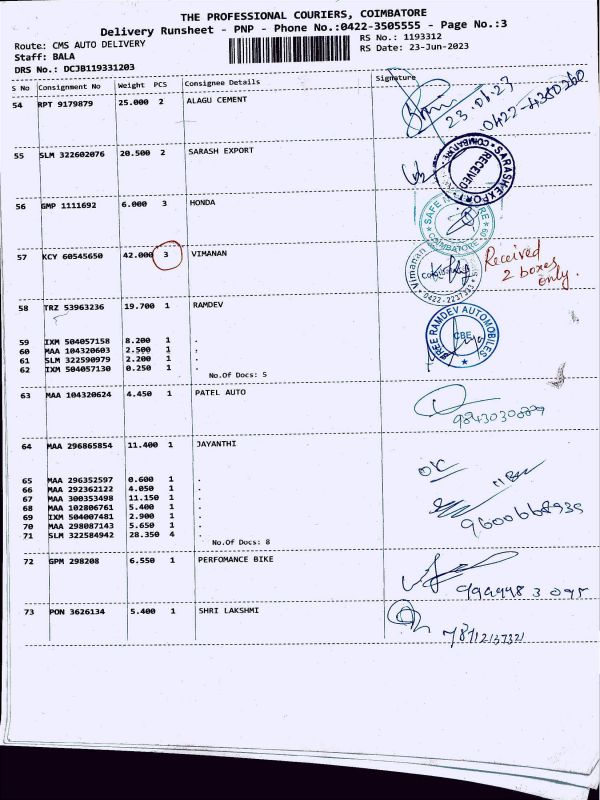 THE PROFESSIONAL COURIERS, COIMBATORE
Delivery Runsheet - PNP - Phone No.:0422-3505555 - Page No.:3
Route: CMS AUTO DELIVERY
RS No.: 1193312
Staff: BALA
RS Date: 23-Jun-2023
DRS No.: DCJB119331203
S No Consignment No Weight PCS Consignee Details Signature
54 RPT 9179879 25.000 2 ALAGU CEMENT
23.06.23
0422-4380260
55 SLM 322602076 20.500 2 SARASH EXPORT
SARASH EXPORT COIMBATORE RECEIVED
56 GMP 1111692 6.000 3 HONDA
SAFE COIMBATORE
57 KCY 60545650 42.000 3 VIMANAN
Vimanan Coimbatore 0422-2237393
Received
2 boxes
only.
58 TRZ 53963236 19.700 1 RAMDEV
SREE RAMDEV AUTOMOBILES CBE
59 IXM 504057158 8.200 1 .
60 MAA 104320603 2.500 1 .
61 SLM 322590979 2.200 1 .
62 IXM 504057130 0.250 1 .
No.Of Docs: 5
63 MAA 104320624 4.450 1 PATEL AUTO
64 MAA 296865854 11.400 1 JAYANTHI
OK
65 MAA 296352597 0.600 1 .
66 MAA 292362122 4.050 1 .
67 MAA 300353498 11.150 1 .
68 MAA 102806761 5.400 1 .
69 IXM 504007481 2.900 1 .
70 MAA 298087143 5.650 1 .
71 SLM 322584942 28.350 4 .
9600668935
No.Of Docs: 8
72 GPM 298208 6.550 1 PERFOMANCE BIKE
994448 3 095
73 PON 3626134 5.400 1 SHRI LAKSHMI